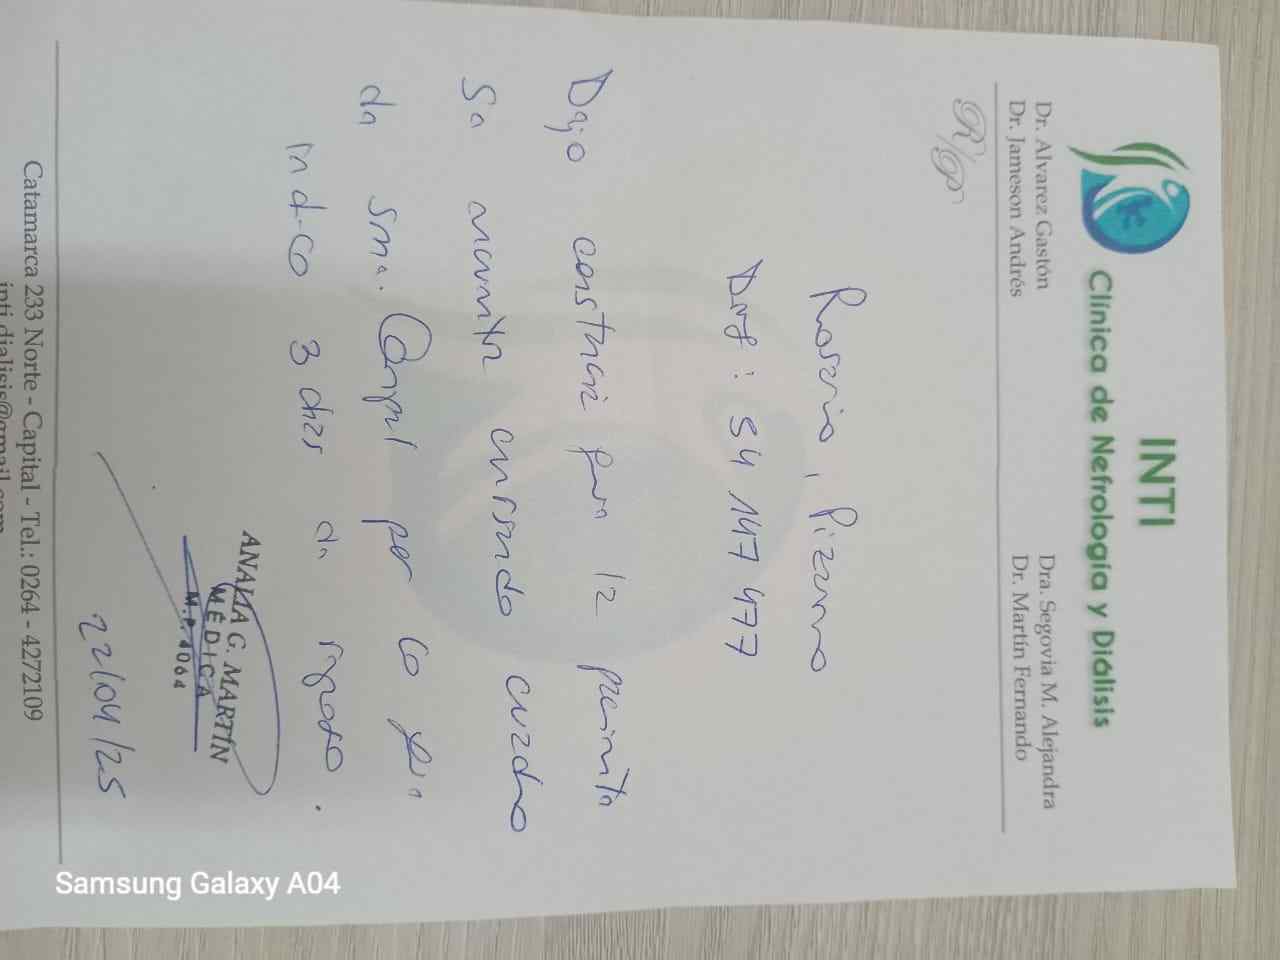 INTI
Clínica de Nefrología y Diálisis
Dr. Alvarez Gastón
Dra. Segovia M. Alejandra
Dr. Jameson Andrés
Dr. Martín Fernando
R/p
Rosario, Pizarro
DNI: 54 147 477
Dejo constancia que la paciente
se encuentra cursando cuadro
de por lo que
indico 3 días de reposo.
ANALIA G. MARTÍN
MÉDICA
M.P. 4064
22/04/25
Catamarca 233 Norte - Capital - Tel.: 0264 - 4272109
Samsung Galaxy A04